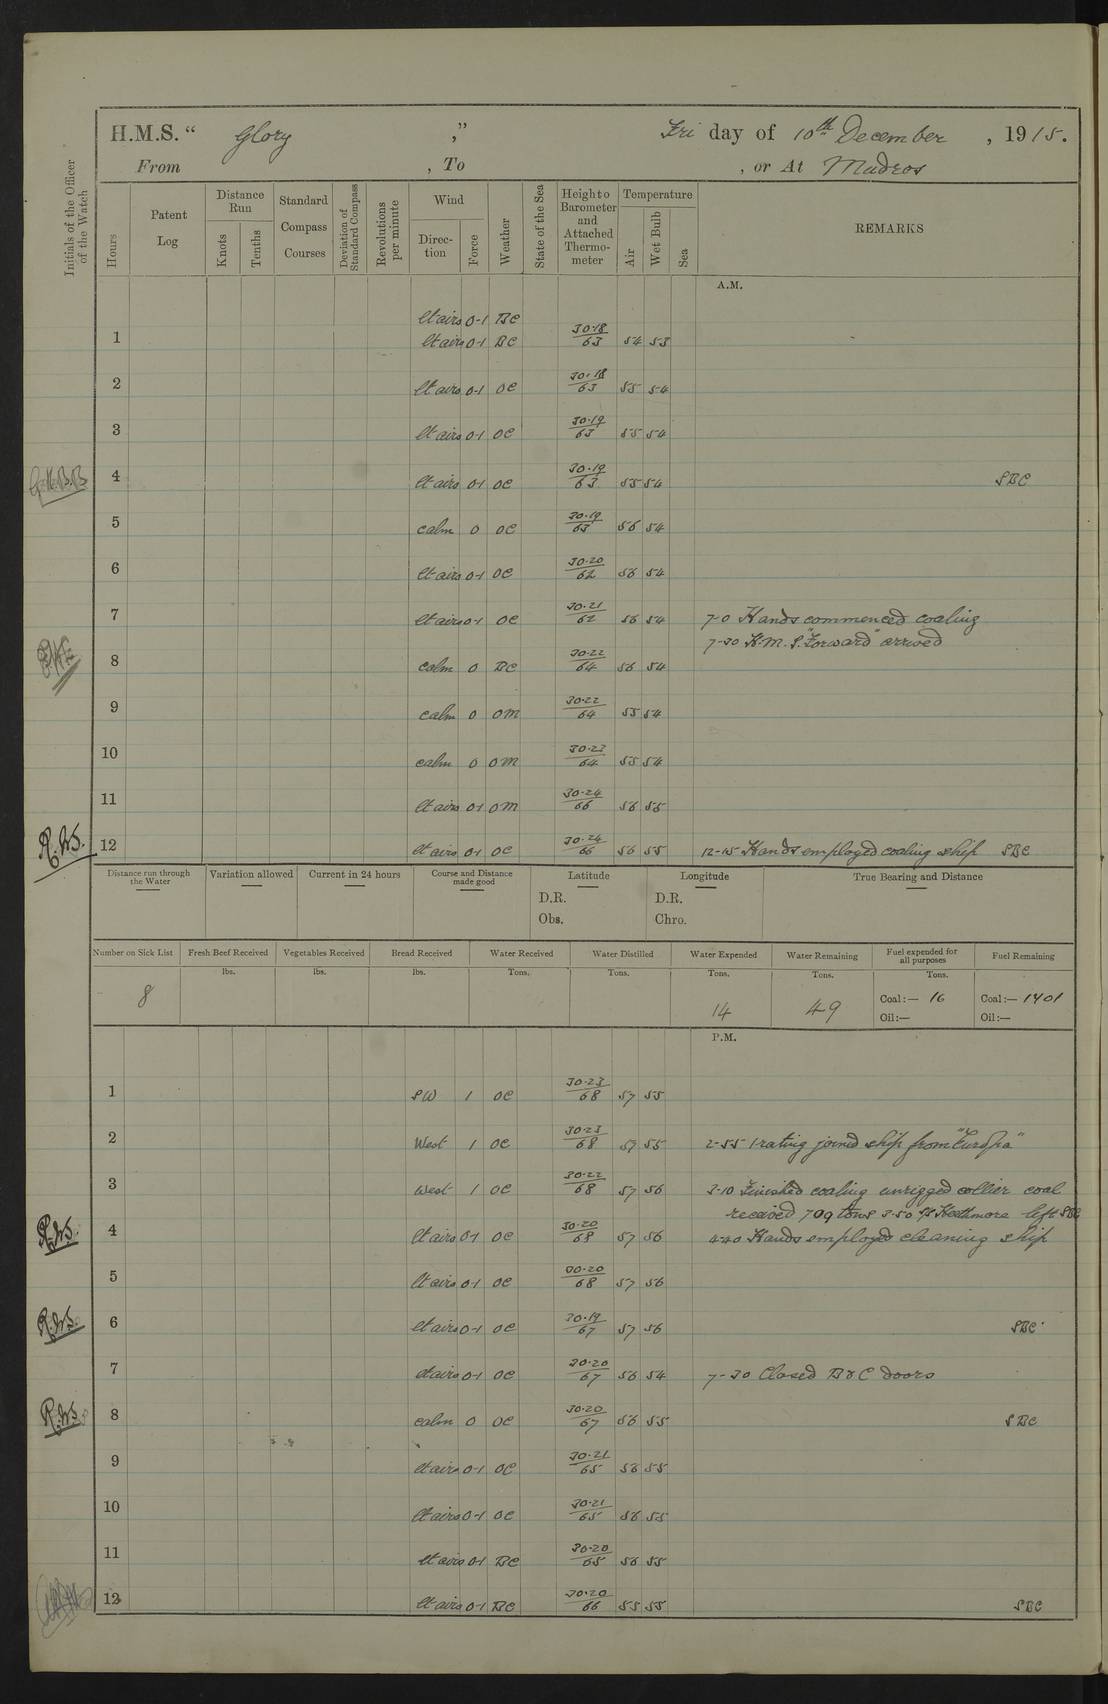 H.M.S. " Glory ," Fri day of 10th December , 1915.
From , To , or At Mudros
Initials of the Officer of the Watch
Hours Patent Log Distance Run Knots Tenths Standard Compass Courses Deviation of Standard Compass Revolutions per minute Wind Direction Force Weather State of the Sea Height o Barometer and Attached Thermometer Temperature Air Wet Bulb Sea REMARKS
A.M.
lt airs 0-1 BC
1 lt airs 0-1 BC 30.18/63 54 53
2 lt airs 0-1 OC 30.18/63 55 54
3 lt airs 0-1 OC 30.19/63 55 54
4 lt airs 0-1 OC 30.19/63 55 54 SBC
5 calm 0 OC 30.19/63 56 54
6 lt airs 0-1 OC 30.20/62 56 54
7 lt airs 0-1 OC 30.21/62 56 54 7-0 Hands commenced coaling
7-30 H.M.S. "Forward" arrived
8 calm 0 BC 30.22/64 56 54
9 calm 0 OM 30.22/64 55 54
10 calm 0 OM 30.23/64 55 54
11 lt airs 0-1 OM 30.24/66 56 55
R.W.S. 12 lt airs 0-1 OC 30.24/66 56 55 12-15 Hands employed coaling ship SBC
Distance run through the Water Variation allowed Current in 24 hours Course and Distance made good Latitude Longitude True Bearing and Distance
D.R. D.R.
Obs. Chro.
Number on Sick List Fresh Beef Received Vegetables Received Bread Received Water Received Water Distilled Water Expended Water Remaining Fuel expended for all purposes Fuel Remaining
lbs. lbs. lbs. Tons. Tons. Tons. Tons. Tons.
8 14 49 Coal:— 16 Coal:— 1401
Oil:— Oil:—
P.M.
1 SW 1 OC 30.23/68 57 55
2 West 1 OC 30.23/68 57 55 2-55 1 rating joined ship from "Europa"
3 West 1 OC 30.22/68 57 56 3-10 Finished coaling unrigged collier coal
received 709 tons 3-50 SS Heathmore left SBC
R.W.S. 4 lt airs 0-1 OC 30.20/68 57 56 4-40 Hands employed cleaning ship
5 lt airs 0-1 OC 30.20/68 57 56
R.W.S. 6 lt airs 0-1 OC 30.19/67 57 56 SBC
7 lt airs 0-1 OC 30.20/67 56 54 7-30 Closed B & C doors
R.W.S. 8 calm 0 OC 30.20/67 56 55 SBC
9 lt airs 0-1 OC 30.21/65 56 55
10 lt airs 0-1 OC 30.21/65 56 55
11 lt airs 0-1 BC 30.20/65 56 55
12 lt airs 0-1 BC 30.20/66 55 55 SBC